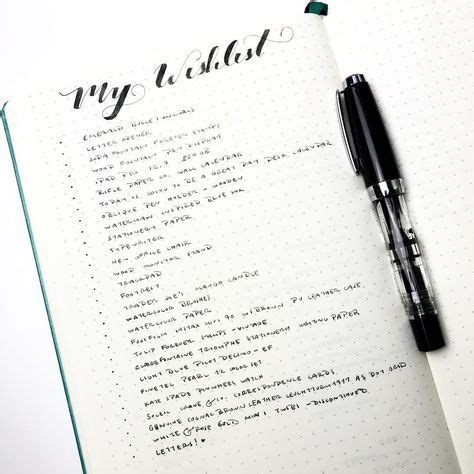 My Wishlist
EMERALD BULLET JOURNALS
LETTER OPENER
SODA FOUNTAIN FOREVER STAMPS
WOOD FOUNTAIN PEN DISPLAY
IPAD PRO 12.9 256GB
RIFLE PAPER CO. WALL CALENDAR
TODAY IS GOING TO BE A GREAT DAY DESK CALENDAR
OBLIQUE PEN HOLDER - WOODEN
WATERMAN INSPIRED BLUE INK
STATIONERY PAPER
TYPEWRITER
NEW OFFICE CHAIR
WOOD MONITOR STAND
TRACKPAD
FOOTREST
TRADER JOE'S MANGO CANDLE
WATERCOLOR BRUSHES
WATERCOLOR PAPER
FUJIFILM INSTAX MINI 90 W/ BROWN PU LEATHER CASE
TULIP FOREVER STAMPS - VINTAGE
CLAIREFONTAINE TRIOMPHE STATIONERY WRITING PAPER
LIGHT BLUE PILOT - EF
FINETEC PEARL 12 COLOR SET
KATE SPADE PINWHEEL WATCH
SOLEIL CRANE & CO. CORRESPONDENCE CARDS
GENUINE COGNAC BROWN LEATHER LEUCHTTURM1917 A5 DOT GRID
WHITE & ROSE GOLD MINI TWSBI - DISCONTINUED
LETTERS! ♥